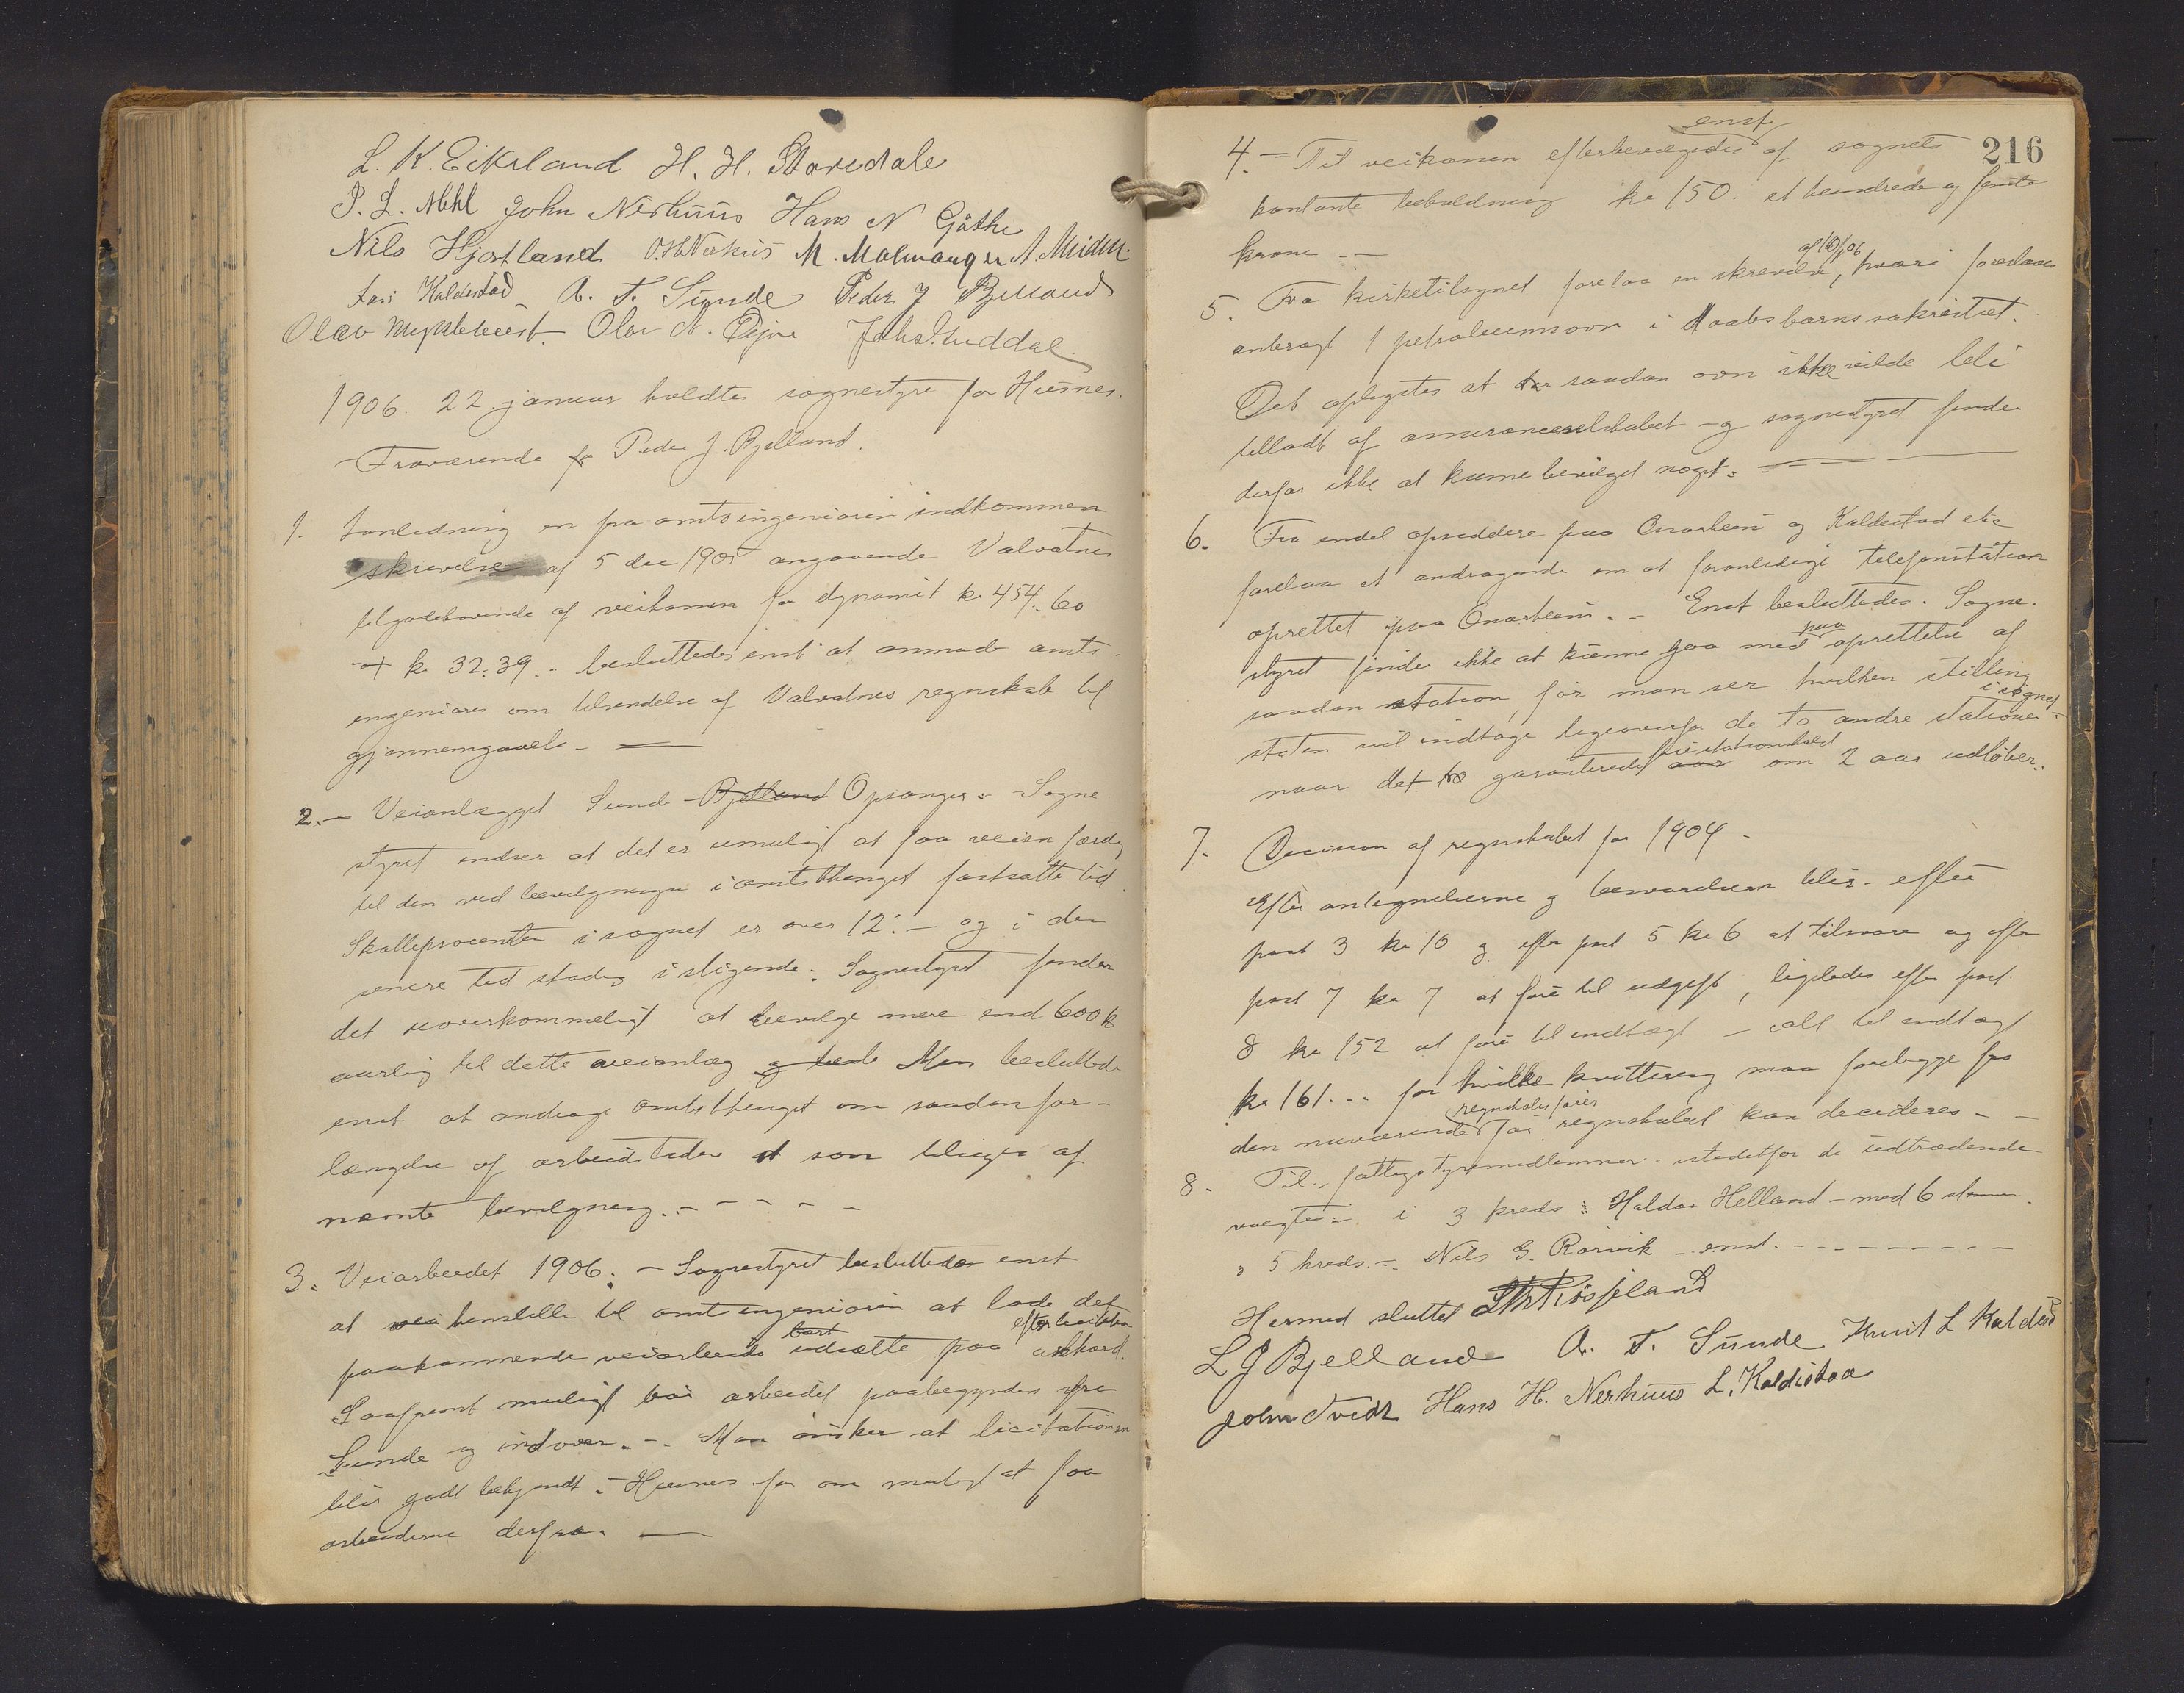 L. K. Eikeland H. H. Staredale
P. L. Mehl John Nerhuus Hans N Gjöthe
Nils Hjortland O. H. Nerhus M. Malmanger
Lars Kaldestad A. T. Sunde Peder J Bjelland
Olav Myklebust. Olav N. Johs. Guddal.
1906. 22 januar holdtes sognestyre for Husnes.
Fraværende Peder J. Bjelland.
1. Ianledning en fra amtsingeniøren indkommen
skrivelse af 5 dec 1905 angaaende Valvatnes
tilgodehavende af veikassen for dynamit kr 454.60
+ kr 32.39. - besluttedes enst at anmode amts-
ingeniøren om tilsendelse af Valvatnes regnskab til
gjennemgaaelse. —
2. — Veianlægget Sund - Bjelland Opsanger. - Sogne
styret indser at det er umuligt at faa veien færdig
til den ved bevilgningen i amtsthinget fastsatte tid.
Skatteprocenten i sognet er over 12. - og i den
senere tid stadig i stigende. Sognestyret finder
det uoverkommeligt at bevilge mere end 600 kr
aarlig til dette veianlæg Man besluttede
enst at andrage amtsthinget om saadan for-
længelse af arbeidstiden som bliver af
nævnte bevilgning. - - - - -
3. Veiarbeidet 1906. - Sognestyret besluttedes enst
at henstille til amtsingeniøren at lade det
efter licitation
paakommende veiarbeide bort udsætte paa akkord.
Saafremt muligt bør arbeidet paabegyndes fra
Sunde og indover. - Man ønsker at licitationen
blir godt bekjendt i Husnes for om muligt at faa
arbeiderne derfra. —
216
enst
4. — Til veikassen efterbevilgedes af sognets
kontante beholdning kr 150. et hundrede og femti
krone. -
af 10/1 06
5. Fra kirketilsynet forelaa en skrivelse, hvori foreslaaes
anbragt 1 petroleumsovn i daabsbarnssakristiet.
Det oplystes at saadan ovn ikke vilde bli
tilladt af assuranceselskabet - og sognestyret finder
derfor ikke at kunne bevilget noget. —
6. Fra endel opsiddere paa Onarheim og Kaldestad etc
forelaa et andragende om at foranledige telefonstation
oprettet paa Onarheim. - Enst besluttedes. Sogne-
styret finder ikke at kunne gaa med paa oprettelse af
saadan station, før man ser hvilken stilling
i sognet
staten vil indtage ligeoverfor de to andre stationer -
naar det garanterede fri stationshold om 2 aar udløber.
7. Decision af regnskabet for 1904 -
Efter antegnelserne og besvarelsen blir - efter
post 3 kr 10 og efter post 5 kr 6 at tilsvare og efter
post 7 kr 7 at føre til udgift, ligeledes efter post
8 kr 152 at føre til indtægt - ialt til indtægt
kr 161... for hvilke kvittering maa foreligge fra
regnskabsfører
den nuværende før regnskabet kan decideres. -
8. Til fattigstyremedlemmer istedetfor de udtrædende
valgtes: i 3 kreds: Haldor Helland - med 6 stemmer.
" 5 kreds. - Nils G. Rørvik - enst. - - - - - - -
Hermed sluttet
L J Bjelland A. T. Sunde Knut L Kaldestad
John Tvedt Hans H. Nerhuus L. Kaldestad